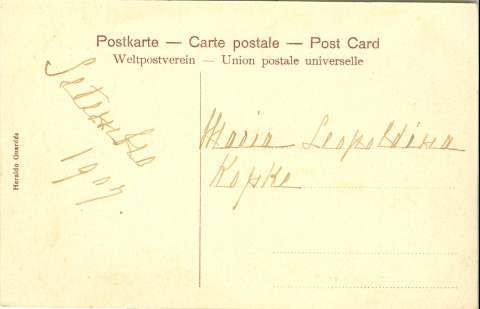 Postkarte — Carte postale — Post Card
Weltpostverein — Union postale universelle
Setembro
1907.
Maria Leopoldina
Kopke
Heraldo Guarida